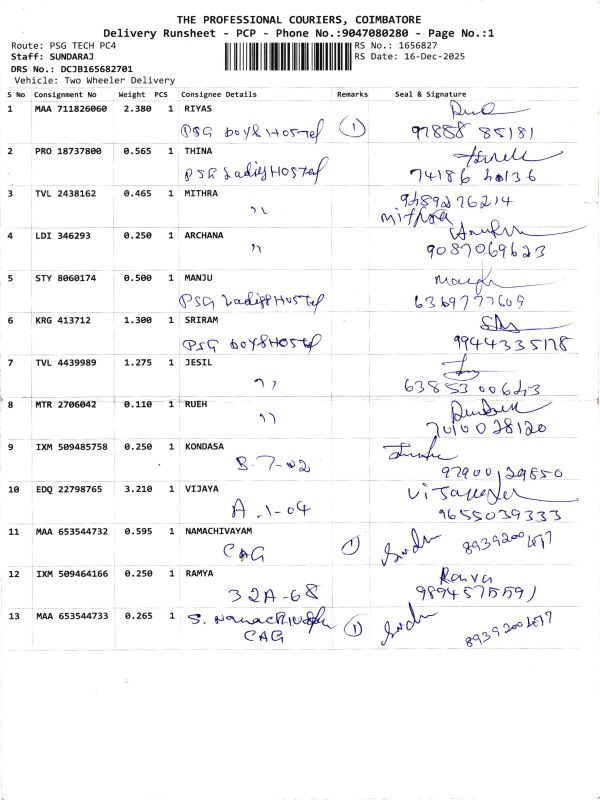 THE PROFESSIONAL COURIERS, COIMBATORE
Delivery Runsheet - PCP - Phone No.:9047080280 - Page No.:1
Route: PSG TECH PC4 RS No.: 1656827
Staff: SUNDARAJ RS Date: 16-Dec-2025
DRS No.: DCJB165682701
Vehicle: Two Wheeler Delivery
S No Consignment No Weight PCS Consignee Details Remarks Seal & Signature
1 MAA 711826060 2.380 1 RIYAS
PSG boys Hostel 1 97888 85181
2 PRO 18737800 0.565 1 THINA
PSG Ladies Hostel 74186
3 TVL 2438162 0.465 1 MITHRA 9489276214
" Mithra
4 LDI 346293 0.250 1 ARCHANA
" 9087069623
5 STY 8060174 0.500 1 MANJU
PSG Ladies Hostel 6369777609
6 KRG 413712 1.300 1 SRIRAM
PSG boys Hostel 9944335178
7 TVL 4439989 1.275 1 JESIL
" 63853 00643
8 MTR 2706042 0.110 1 RUEH
" 7010028120
9 IXM 509485758 0.250 1 KONDASA
B-7-02 97900 29850
10 EDQ 22798765 3.210 1 VIJAYA
A.1-04 9655039333
11 MAA 653544732 0.595 1 NAMACHIVAYAM
CAG 1
12 IXM 509464166 0.250 1 RAMYA
32A-68 9894575591
13 MAA 653544733 0.265 1 S.
CAG 1